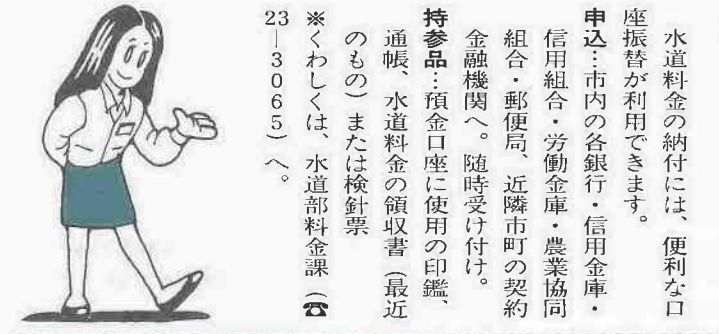 水道料金の納付には、便利な口
座振替が利用できます。
申込…市内の各銀行・信用金庫・
信用組合・労働金庫・農業協同
組合・郵便局、近隣市町の契約
金融機関へ。随時受け付け。
持参品…預金口座に使用の印鑑、
通帳、水道料金の領収書（最近
のもの）または検針票
※くわしくは、水道部料金課（☎
23―3065）へ。